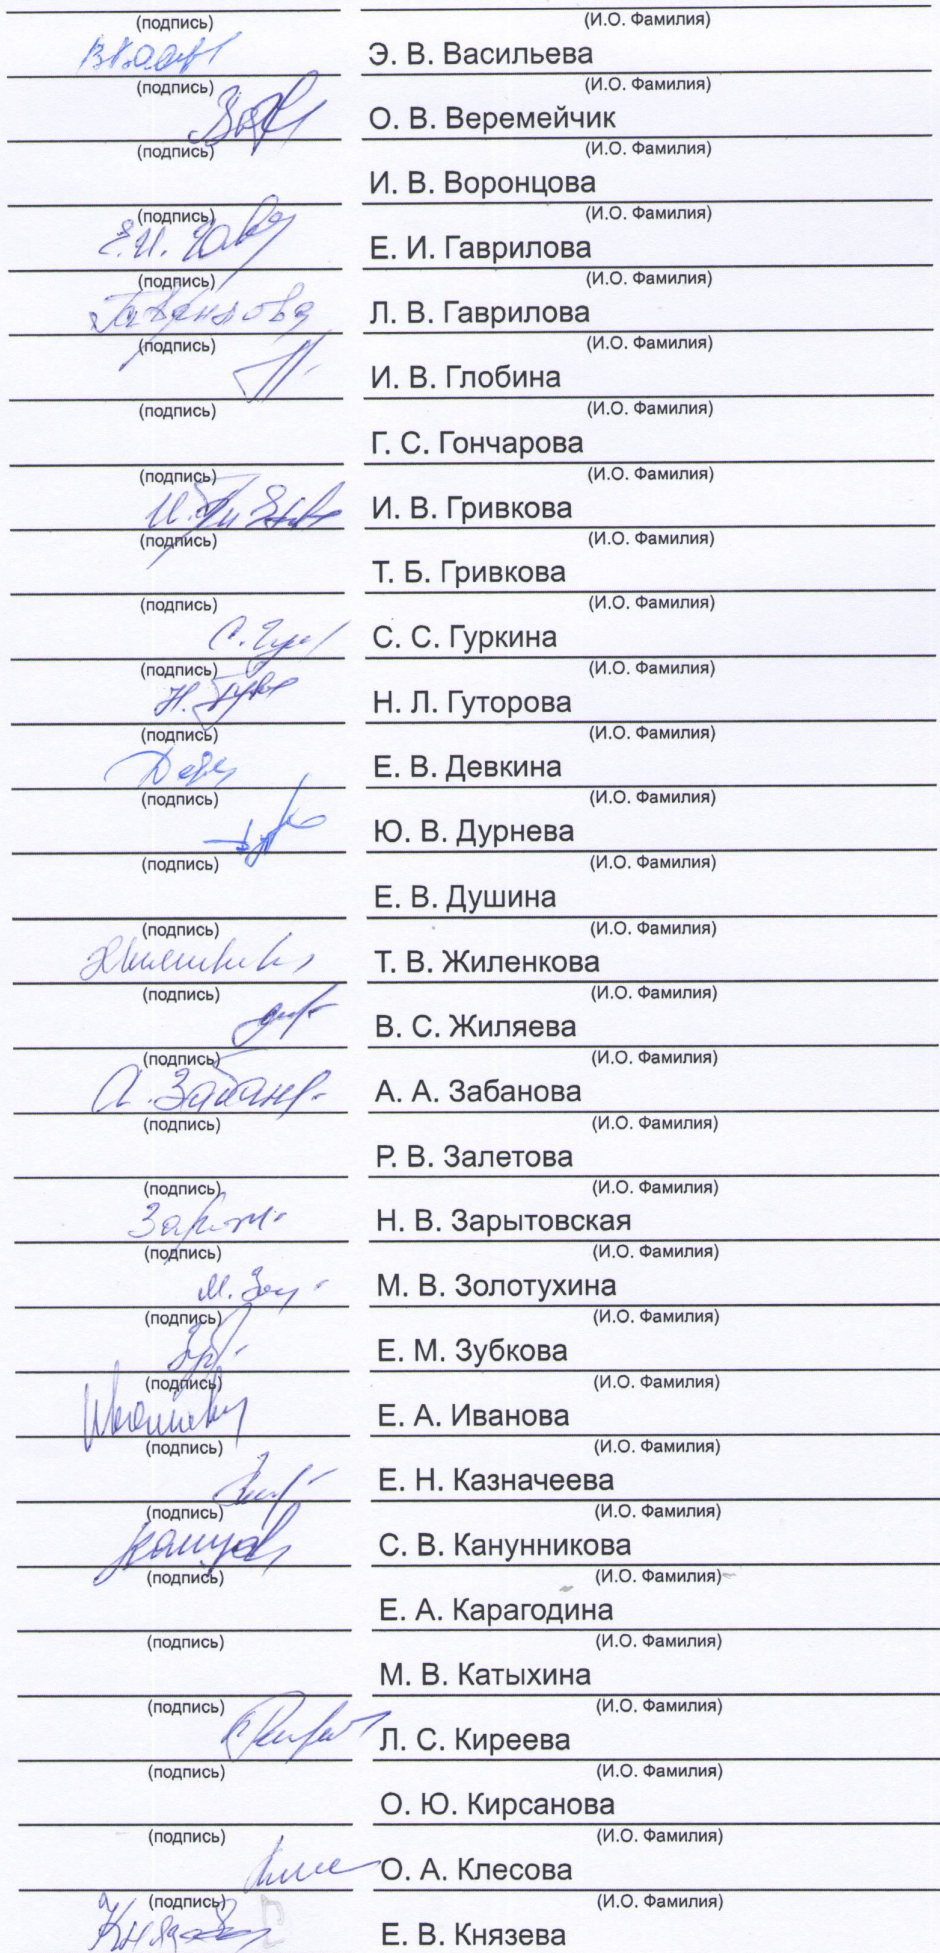 (подпись) (И.О. Фамилия)
Э. В. Васильева
(подпись) (И.О. Фамилия)
О. В. Веремейчик
(подпись) (И.О. Фамилия)
И. В. Воронцова
(подпись) (И.О. Фамилия)
Е.И. Гав Е. И. Гаврилова
(подпись) (И.О. Фамилия)
Л. В. Гаврилова
(подпись) (И.О. Фамилия)
И. В. Глобина
(подпись) (И.О. Фамилия)
Г. С. Гончарова
(подпись) (И.О. Фамилия)
И. В. Гривкова
(подпись) (И.О. Фамилия)
Т. Б. Гривкова
(подпись) (И.О. Фамилия)
С. С. Гуркина
(подпись) (И.О. Фамилия)
Н. Л. Гуторова
(подпись) (И.О. Фамилия)
Е. В. Девкина
(подпись) (И.О. Фамилия)
Ю. В. Дурнева
(подпись) (И.О. Фамилия)
Е. В. Душина
(подпись) (И.О. Фамилия)
Т. В. Жиленкова
(подпись) (И.О. Фамилия)
В. С. Жиляева
(подпись) (И.О. Фамилия)
А. А. Забанова
(подпись) (И.О. Фамилия)
Р. В. Залетова
(подпись) (И.О. Фамилия)
Н. В. Зарытовская
(подпись) (И.О. Фамилия)
М. В. Золотухина
(подпись) (И.О. Фамилия)
Е. М. Зубкова
(подпись) (И.О. Фамилия)
Е. А. Иванова
(подпись) (И.О. Фамилия)
Е. Н. Казначеева
(подпись) (И.О. Фамилия)
С. В. Канунникова
(подпись) (И.О. Фамилия)
Е. А. Карагодина
(подпись) (И.О. Фамилия)
М. В. Катыхина
(подпись) (И.О. Фамилия)
Л. С. Киреева
(подпись) (И.О. Фамилия)
О. Ю. Кирсанова
(подпись) (И.О. Фамилия)
О. А. Клесова
(подпись) (И.О. Фамилия)
Е. В. Князева